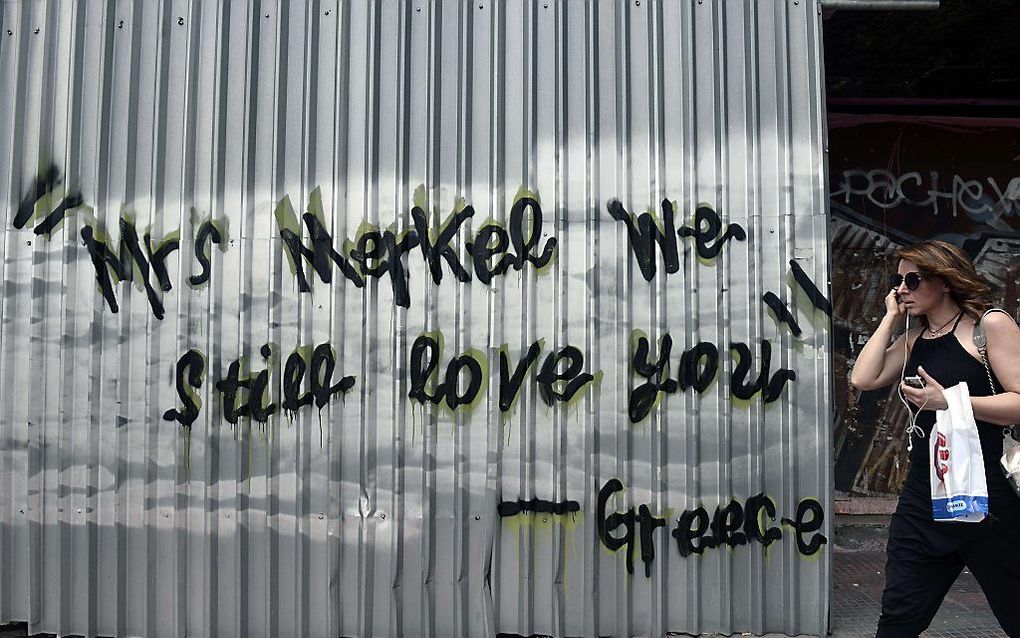 "Mrs Merkel We
still love you"
- Greece